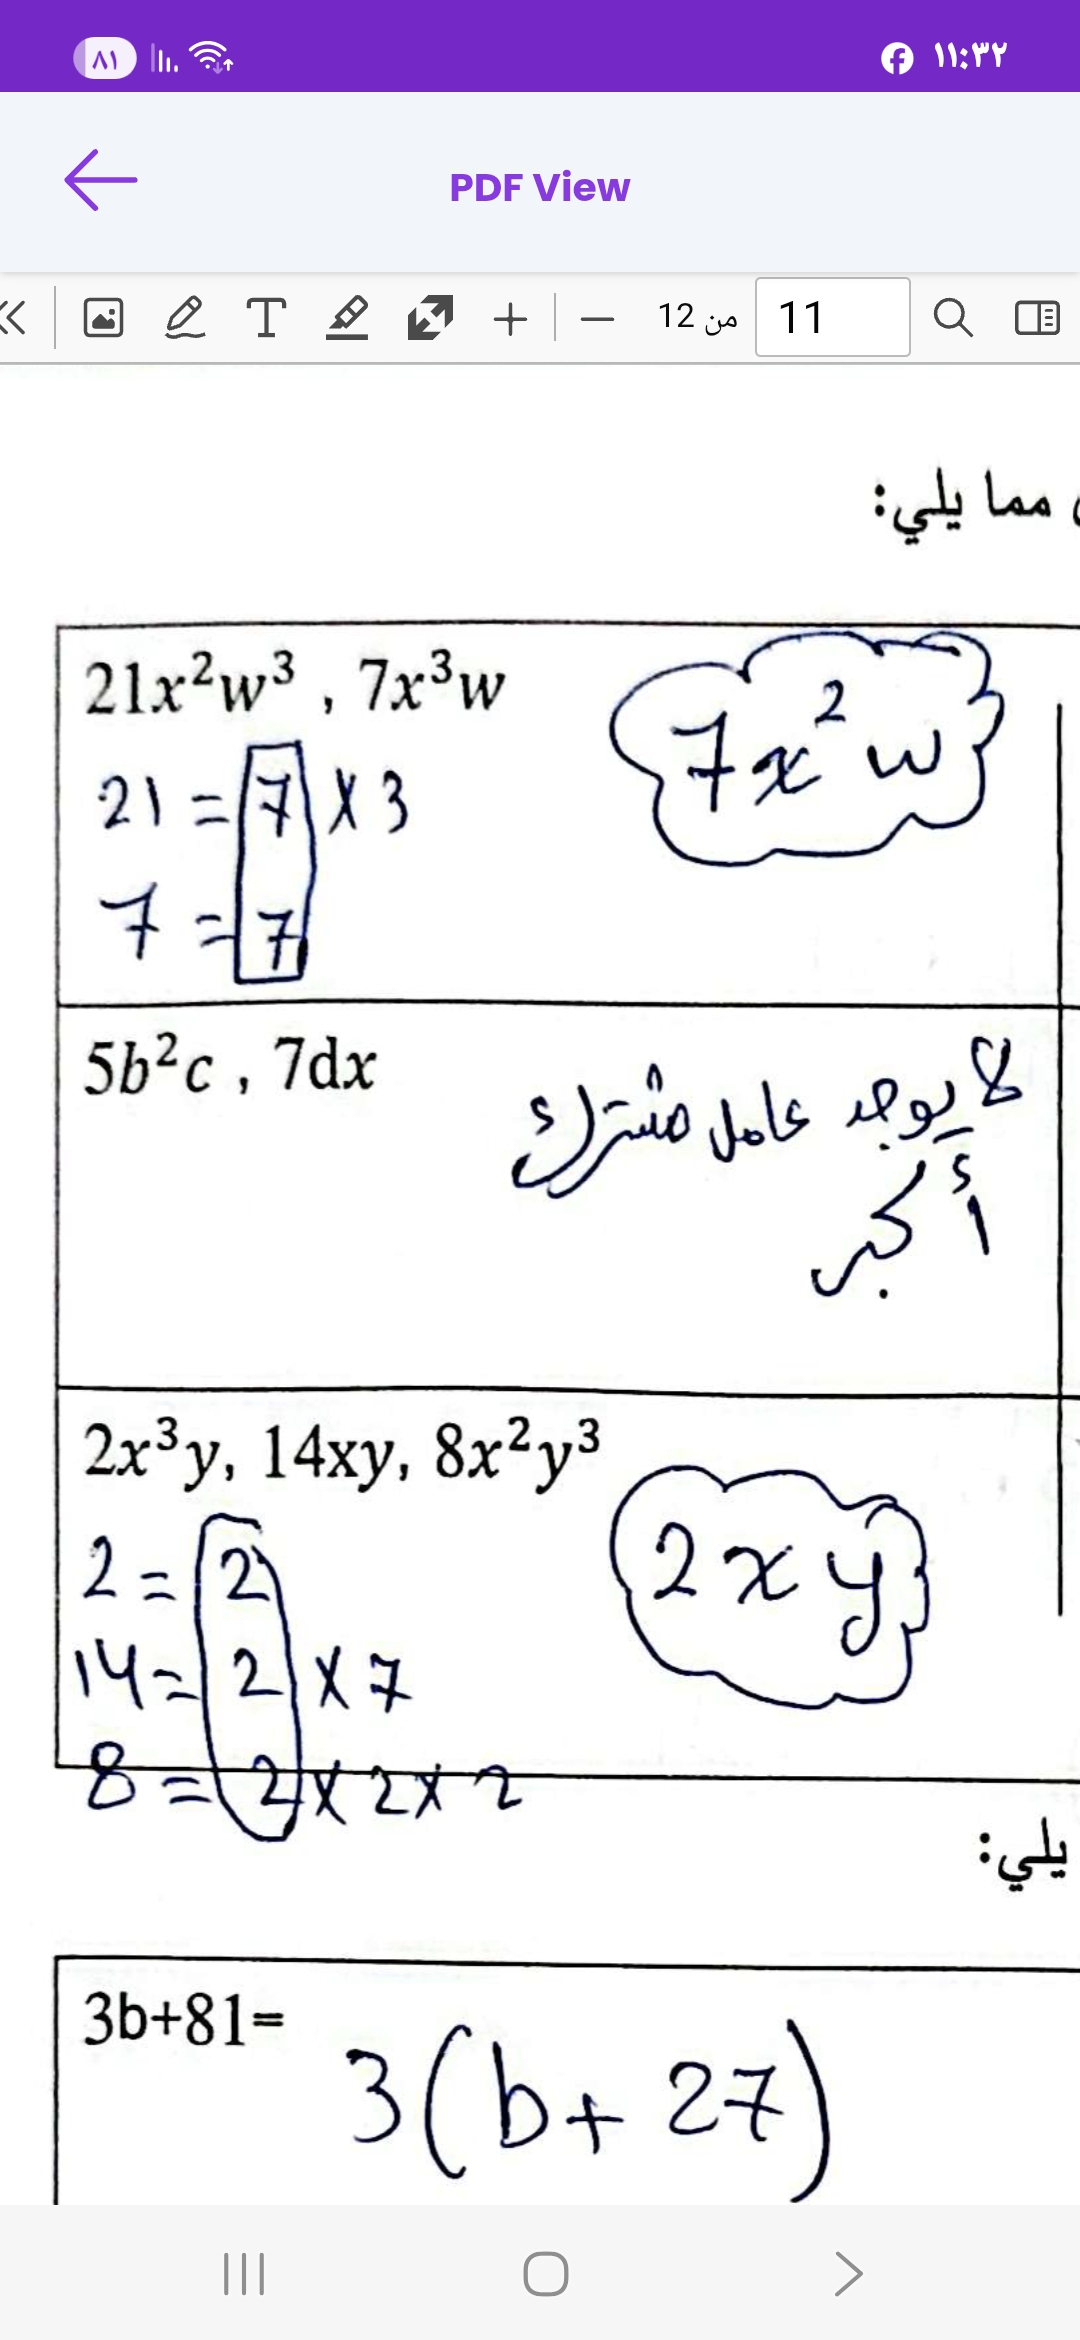 ٨١ ١١:٣٢
PDF View
12 من 11
مما يلي:
21x²w³ , 7x³w
7x²w
21 = 7 X 3
7 = 7
5b²c , 7dx
لا يوجد عامل مشترك
أكبر
2x³y, 14xy, 8x²y³
2xy
2 = 2
14 = 2 X 7
8 = 2 X 2 X 2
يلي:
3b+81=
3(b+27)